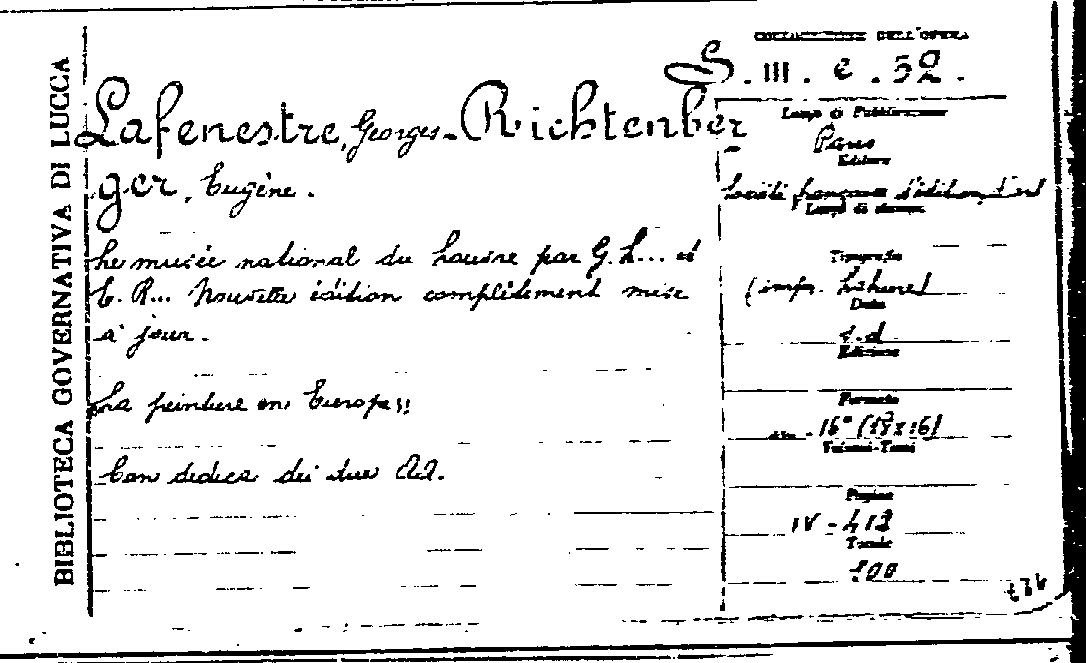 BIBLIOTECA GOVERNATIVA DI LUCCA
COLLOCAZIONE DELL'OPERA
S. III. e. 52.
Lafenestre, Georges - Richtenber
ger, Eugène.
Le musée national du Louvre par G. L... et
E. R... Nouvelle édition complètement mise
à jour.
La peinture en Europe
Con dedica dei due AA.
Luogo di Pubblicazione
Paris
Editore
Société française d'édition d'art
Luogo di stampa
Tipografia
(imp. Lahure)
Data
s.d.
Edizione
Formato
in-16° (
Volumi-Tomi
Pagine
IV - 412
Tavole
100